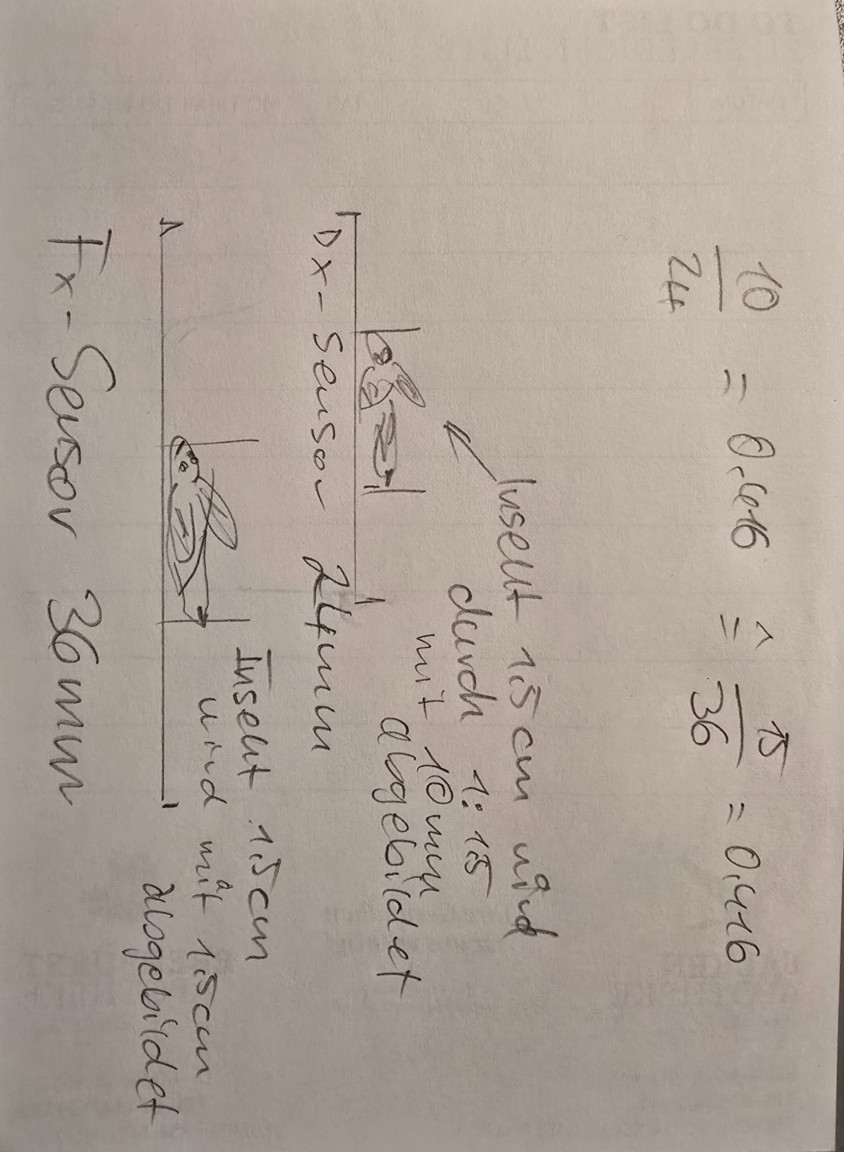 10/24 = 0,416 ≙ 15/36 = 0,416
Insekt 1.5cm wird
durch 1:1.5
mit 10mm
abgebildet
Dx-Sensor 24mm
Insekt 1.5cm
wird mit 1.5cm
abgebildet
Fx-Sensor 36mm